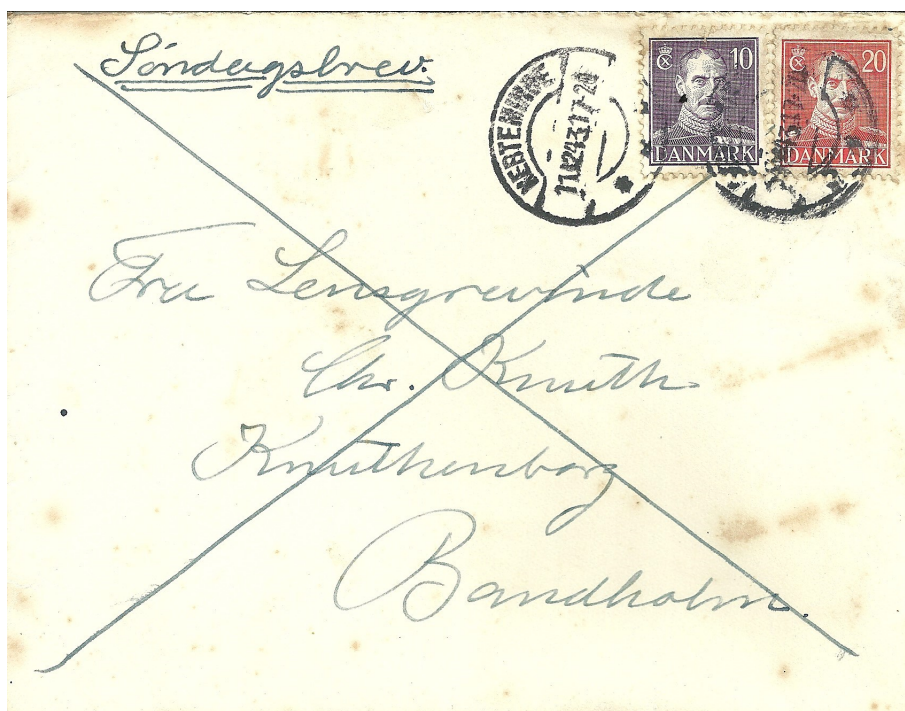 Søndagsbrev.
KERTEMINDE
11.12.43.17-20
10
DANMARK
20
DANMARK
Fru Lensgrevinde
Chr. Knuth
Knuthenborg
Bandholm.